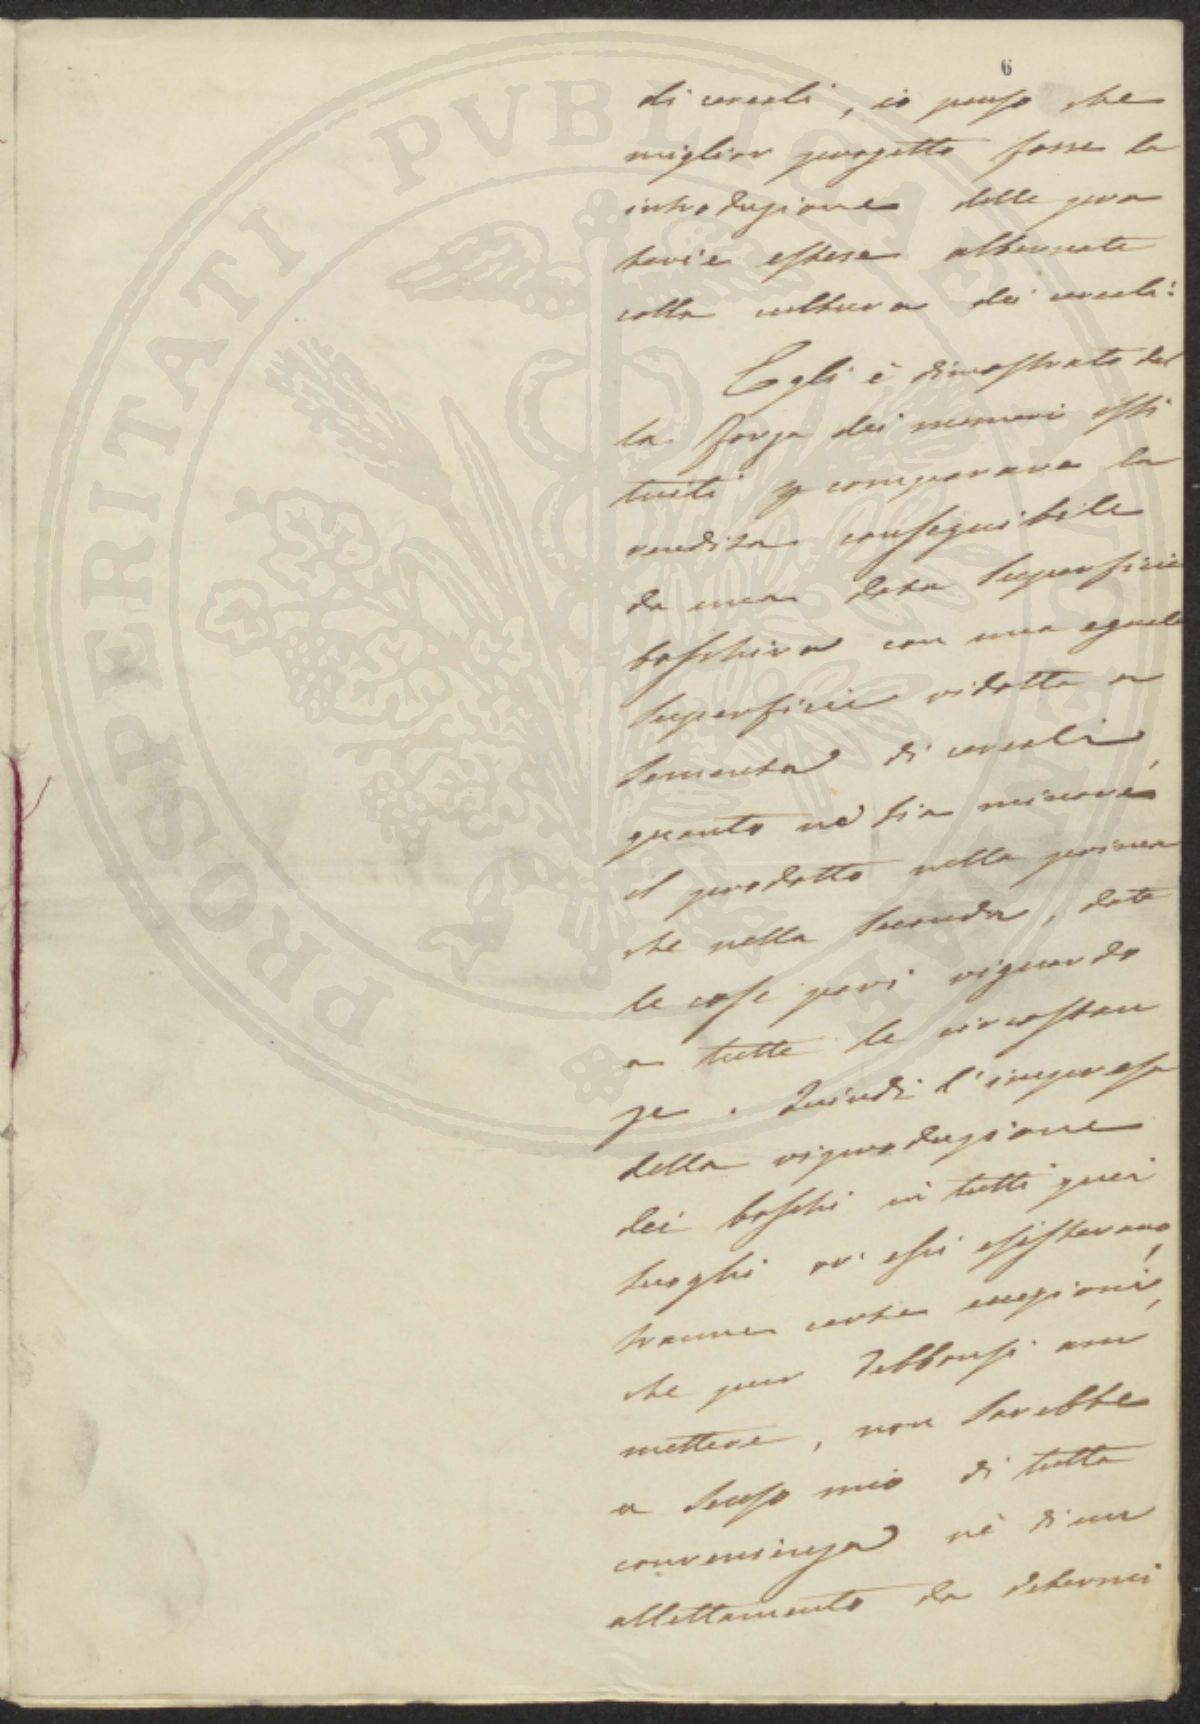 6
di cereali, io penso che
miglior progetto fosse la
introduzione delle pra
terie estese alternate
colla cultura dei cereali:
Egli è dimostrato dal
la forza dei numeri isti
tuiti comparare la
rendita conseguibile
da una data superficie
boschiva con una eguale
superficie ridotta a
sementa di cereali,
quanto ne sia minore
il prodotto nella prima
che nella seconda, date
le cose pari riguardo
a tutte le circostan
ze. Quindi l'impresa
della riproduzione
dei boschi in tutti quei
luoghi ov' essi esistevano,
tranne certe eccezioni,
che pur debbonsi am
mettere, non sarebbe
a senso mio di tutta
convenienza nè di un
allettamento da determi
PROSPERITATI PVBLICAE